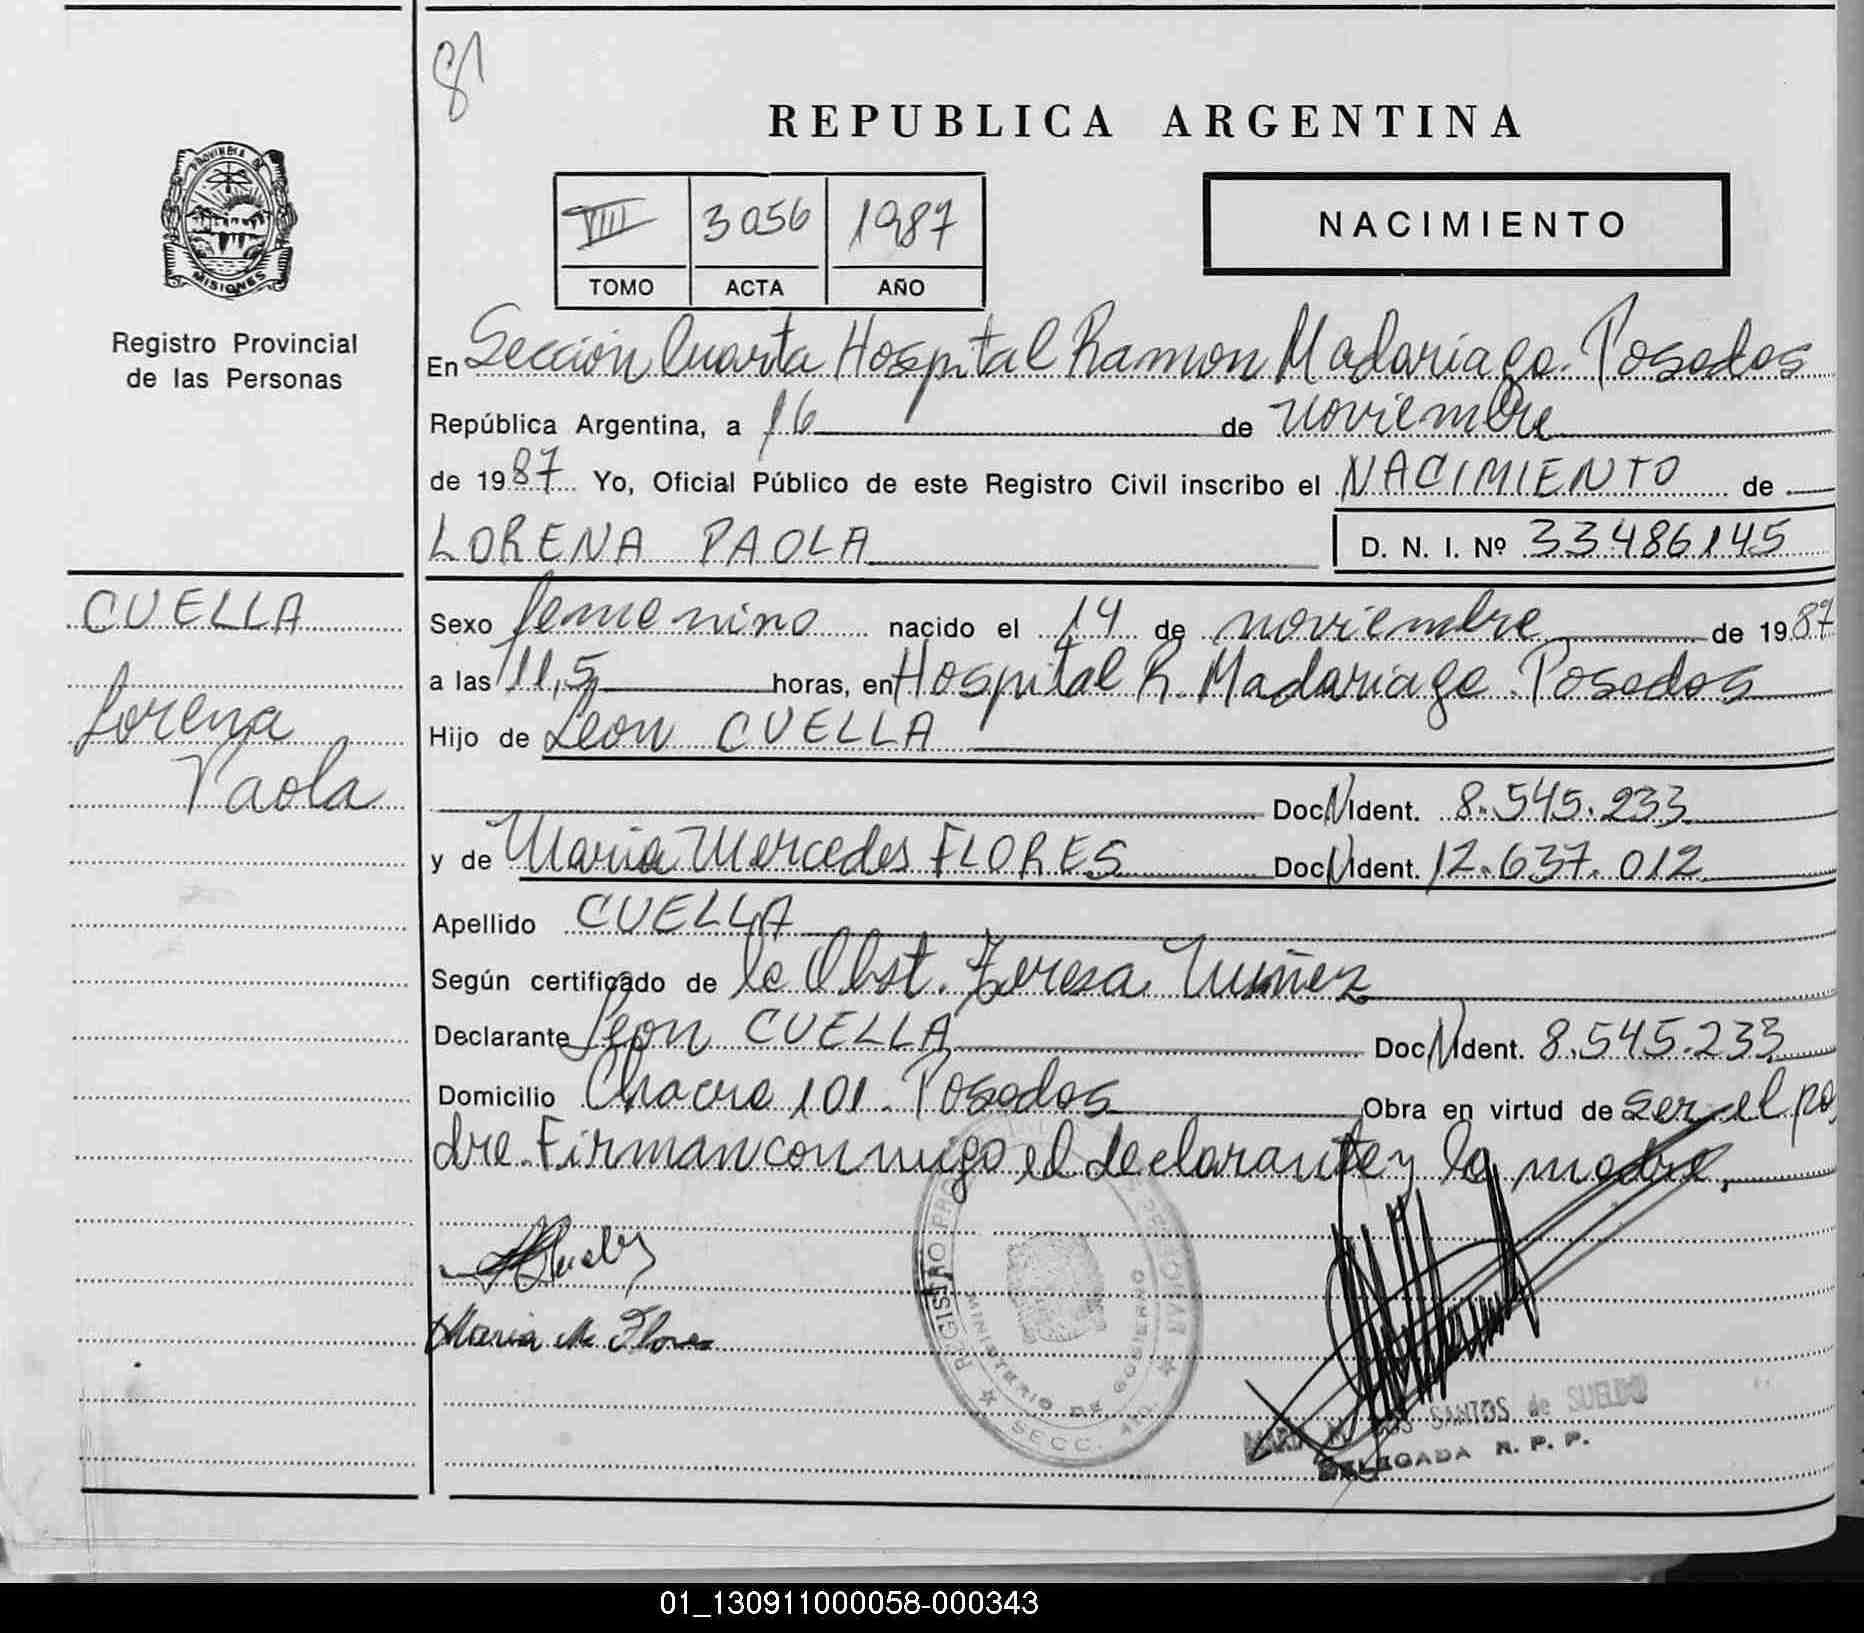 81
REPUBLICA ARGENTINA
PROVINCIA DE
MISIONES
Registro Provincial
de las Personas
VIII 3056 1987
TOMO ACTA AÑO
NACIMIENTO
En Sección Cuarta Hospital Ramon Madariaga. Posadas
República Argentina, a 16 de noviembre
de 1987 Yo, Oficial Público de este Registro Civil inscribo el NACIMIENTO de
LORENA PAOLA D. N. I. Nº 33486145
CUELLA
Lorena
Paola
Sexo femenino nacido el 14 de noviembre de 1987
a las 11,5 horas, en Hospital R. Madariaga. Posadas
Hijo de Leon CUELLA
Doc N Ident. 8.545.233
y de Maria Mercedes FLORES Doc N Ident. 12.637.012
Apellido CUELLA
Según certificado de la Obst. Teresa Nuñez
Declarante Leon CUELLA Doc N Ident. 8.545.233
Domicilio Chacra 101. Posadas Obra en virtud de ser el pa
dre. Firman conmigo el declarante y la madre.
Maria M Flores
REGISTRO
MINISTERIO DE GOBIERNO
SECC.
SANTOS de SUELDO
DELEGADA R. P. P.
01_130911000058-000343